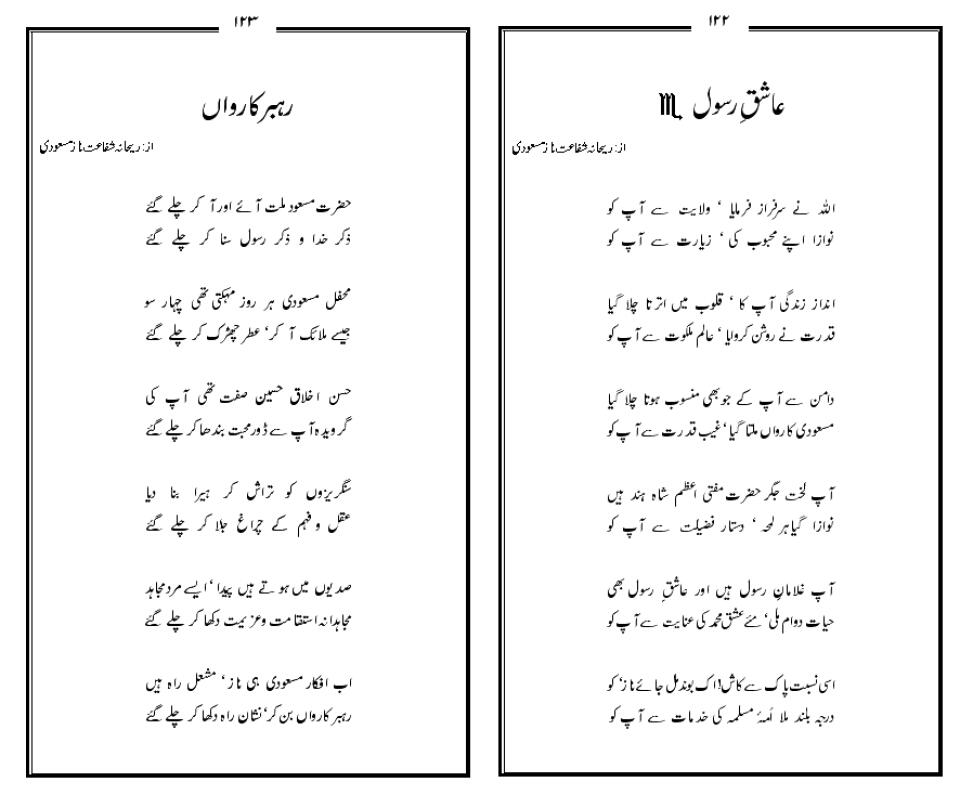 ۱۲۲
عاشقِ رسول ♏
از: ریحانہ شفاعت نازؔ مسعودی
اللہ نے سرفراز فرمایا ‘ ولایت سے آپ کو
نوازا اپنے محبوب کی ‘ زیارت سے آپ کو
انداز زندگی آپ کا ‘ قلوب میں اترتا چلا گیا
قدرت نے روشن کروایا ‘ عالم ملکوت سے آپ کو
دامن سے آپ کے جو بھی منسوب ہوتا چلا گیا
مسعودی کارواں ملتا گیا‘ غیب قدرت سے آپ کو
آپ لخت جگر حضرت مفتی اعظم شاہ ہند ہیں
نوازا گیا ہر لمحہ ‘ دستار فضیلت سے آپ کو
آپ غلامانِ رسول ہیں اور عاشقِ رسول بھی
حیات دوام ملی‘ مئے عشق محمد کی عنایت سے آپ کو
اسی نسبت پاک سے کاش! اک بوند مل جائے نازؔ کو
درجہ بلند ملا اُمۂ مسلمہ کی خدمات سے آپ کو
۱۲۳
رہبر کارواں
از: ریحانہ شفاعت نازؔ مسعودی
حضرت مسعود ملت آئے اور آ کر چلے گئے
ذکر خدا و ذکر رسول سنا کر چلے گئے
محفل مسعودی ہر روز مہکتی تھی چہار سو
جیسے ملائک آ کر‘ عطر چھڑک کر چلے گئے
حسن اخلاق حسین صفت تھی آپ کی
گرویدہ آپ سے ڈور محبت بندھا کر چلے گئے
سنگریزوں کو تراش کر ہیرا بنا دیا
عقل و فہم کے چراغ جلا کر چلے گئے
صدیوں میں ہوتے ہیں پیدا ‘ ایسے مرد مجاہد
مجاہدانہ استقامت و عزیمت دکھا کر چلے گئے
اب افکار مسعودی ہی نازؔ ‘ مشعل راہ ہیں
رہبر کارواں بن کر‘ نشان راہ دکھا کر چلے گئے